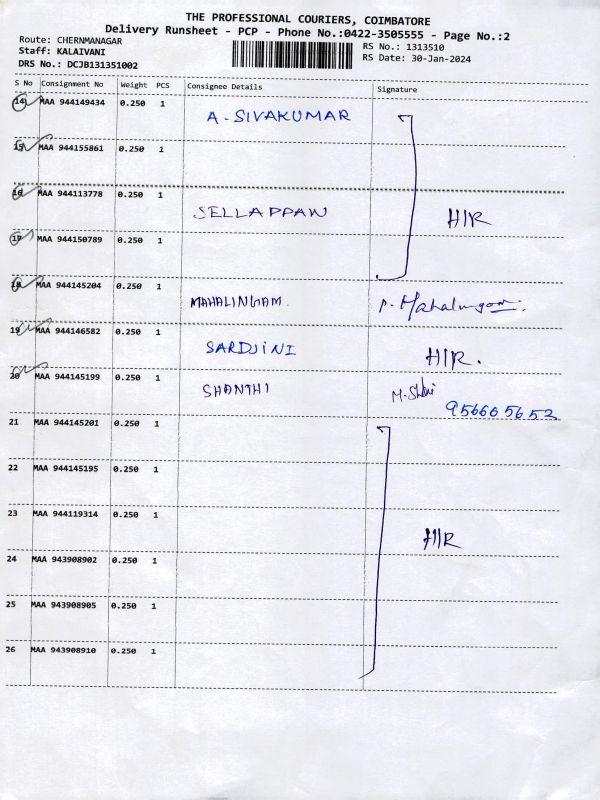 THE PROFESSIONAL COURIERS, COIMBATORE
Delivery Runsheet - PCP - Phone No.:0422-3505555 - Page No.:2
Route: CHERNMANAGAR
RS No.: 1313510
Staff: KALAIVANI
RS Date: 30-Jan-2024
DRS No.: DCJB131351002
S No Consignment No Weight PCS Consignee Details Signature
14 MAA 944149434 0.250 1 A. SIVAKUMAR
15 MAA 944155861 0.250 1
16 MAA 944113778 0.250 1 SELLAPPAN H/R
17 MAA 944150789 0.250 1
18 MAA 944145204 0.250 1 MAHALINGAM. P. Mahalingam.
19 MAA 944146582 0.250 1 SAROJINI H/R.
20 MAA 944145199 0.250 1 SHANTHI M.
9566656 52
21 MAA 944145201 0.250 1
22 MAA 944145195 0.250 1
23 MAA 944119314 0.250 1 H/R
24 MAA 943908902 0.250 1
25 MAA 943908905 0.250 1
26 MAA 943908910 0.250 1